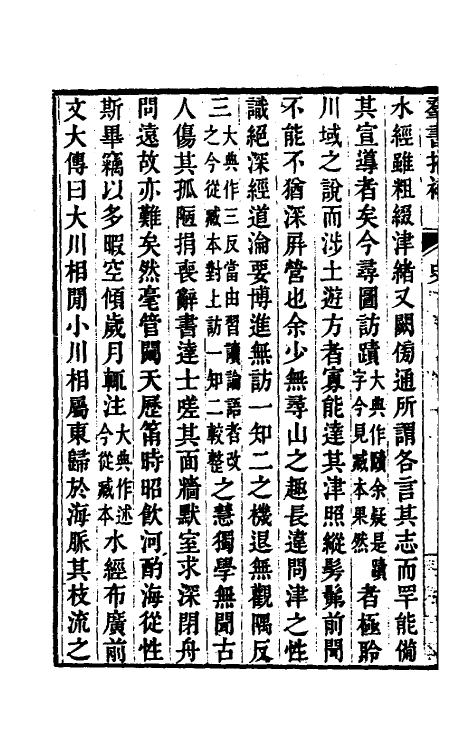 羣書拾補
水經雖粗綴津緒又闕傍通所謂各言其志而罕能備
其宣導者矣今尋圖訪蹟大典作賾余疑是蹟字今見臧本果然者極聆
川域之說而涉土遊方者寡能達其津照縱髣髴前聞
不能不猶深屏營也余少無尋山之趣長違問津之性
識絕深經道淪要博進無訪一知二之機退無觀隅反
三大典作三反當由習讀論語者改之今從臧本對上訪一知二較整之慧獨學無聞古
人傷其孤陋捐喪辭書達士嗟其面牆默室求深閉舟
問遠故亦難矣然毫管闚天歷筩時昭飲河酌海從性
斯畢竊以多暇空傾歲月輒注大典作述今從臧本水經布廣前
文大傳曰大川相閒小川相屬東歸於海脈其枝流之